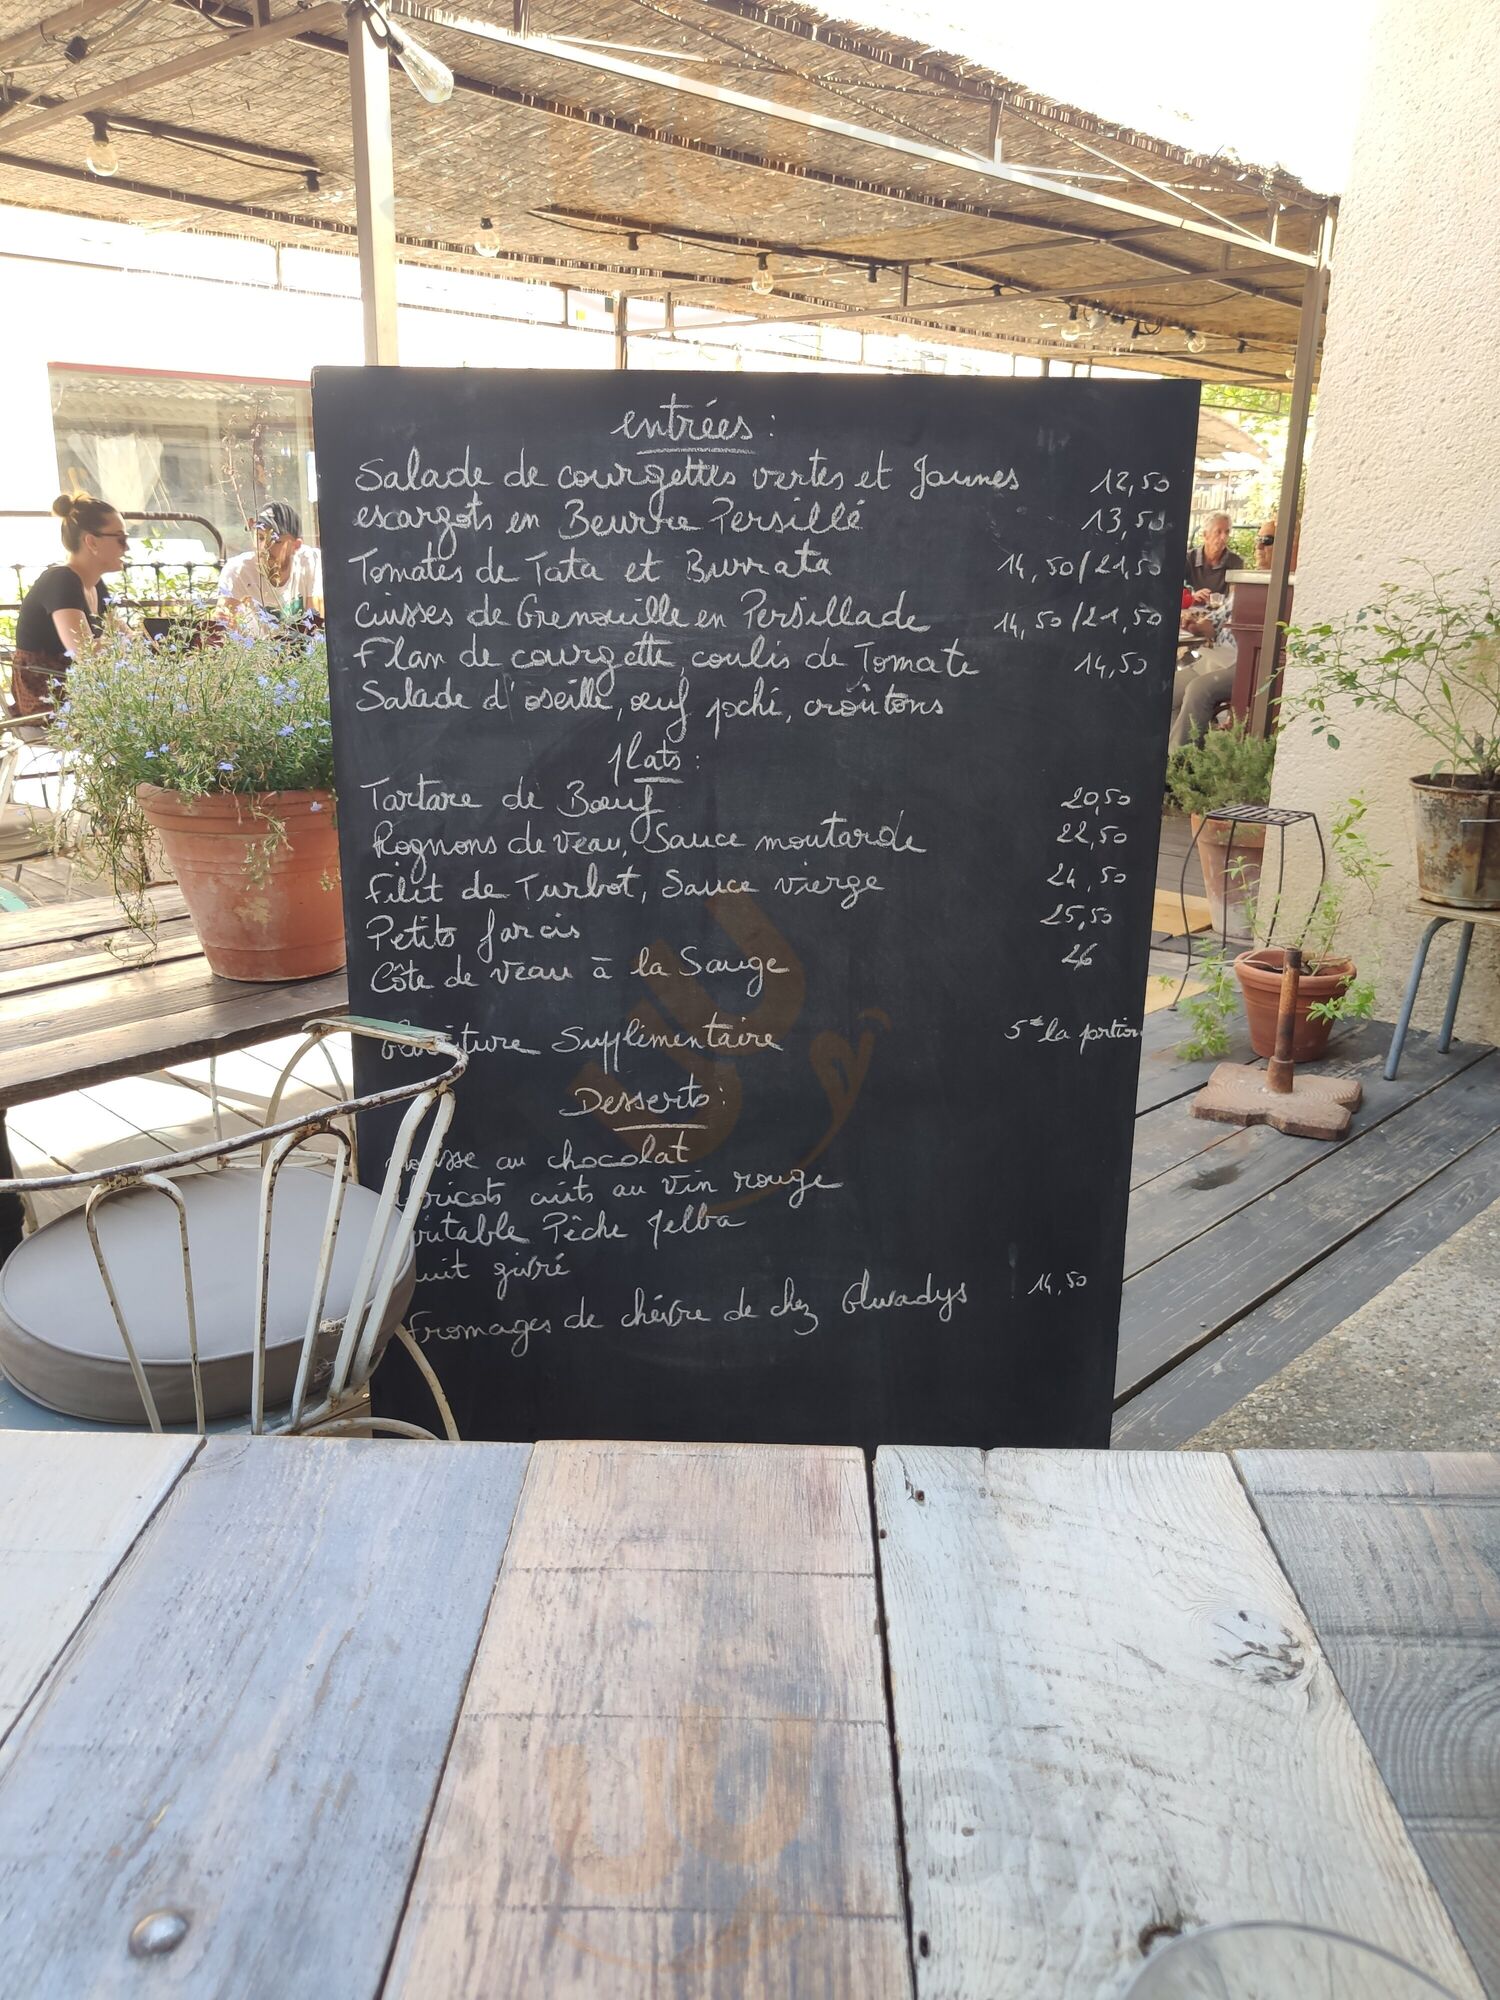 entrées :
Salade de courgettes vertes et Jaunes 12,50
escargots en Beurre Persillé 13,50
Tomates de Tata et Burrata 14,50/21,50
Cuisses de Grenouille en Persillade 14,50/21,50
Flan de courgette, coulis de Tomate 14,50
Salade d'oseille, œuf poché, croûtons
plats :
Tartare de Bœuf 20,50
Rognons de veau, Sauce moutarde 22,50
filet de Turbot, Sauce vierge 24,50
Petits farcis 25,50
Côte de veau à la Sauge 26
Supplémentaire 5€ la portion
Desserts :
au chocolat
cuits au vin rouge
Pêche Melba
givré
Fromages de chèvre de chez Glwadys 14,50